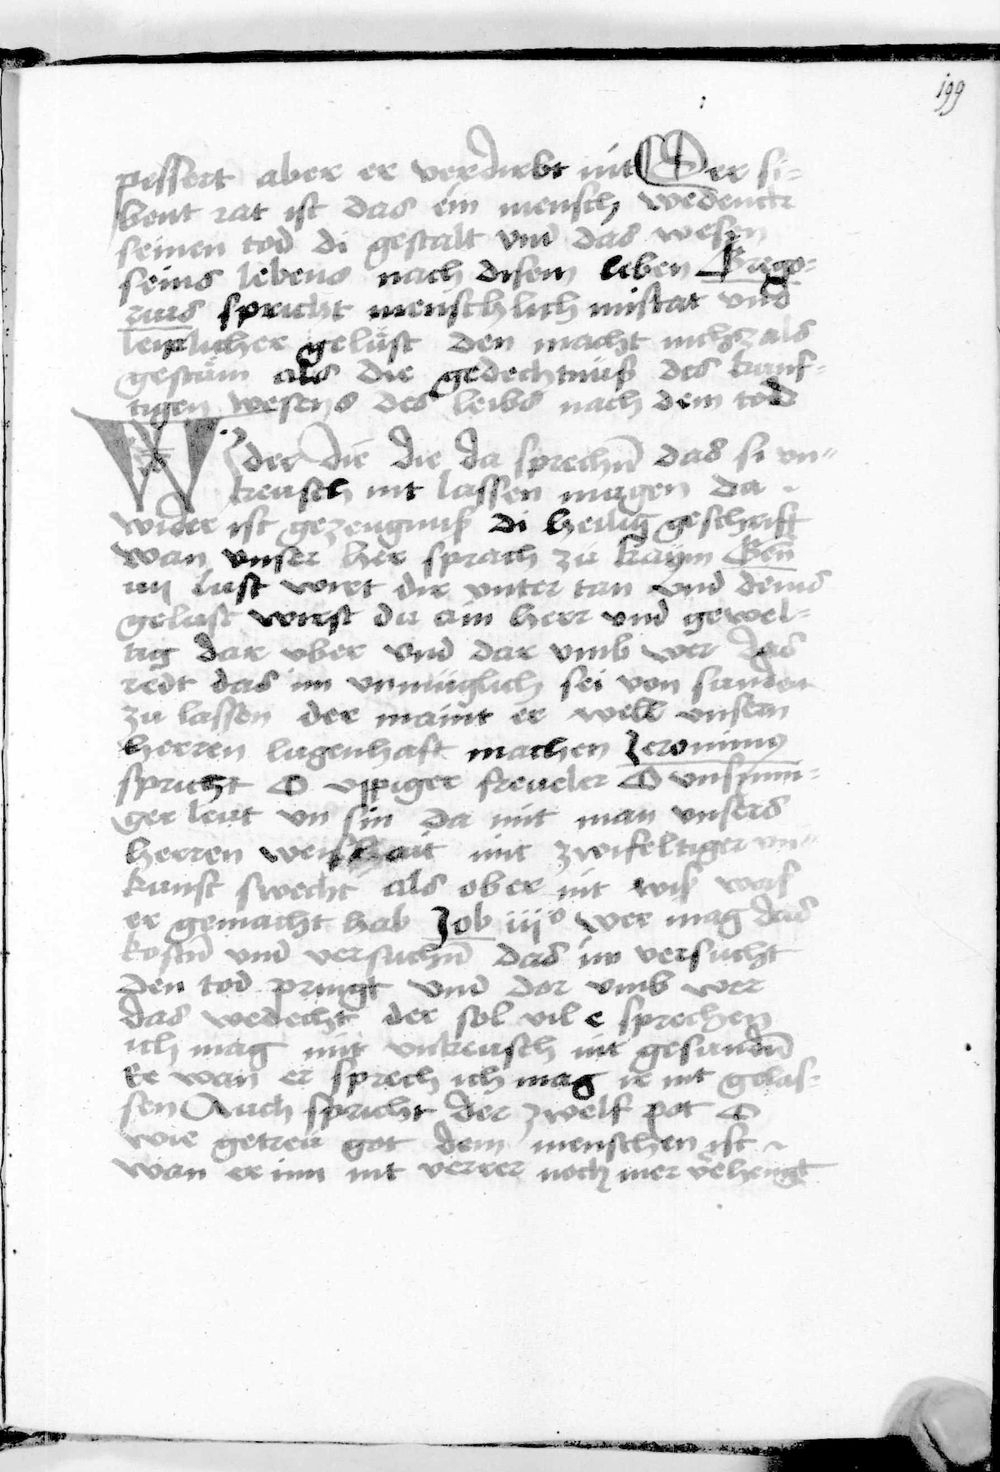 199
pessert aber er verdirbt nit Der si-
bent rat ist das ein mensch wedenckt
seinen tod di gestalt vnd das wesen
seins lebens nach disem leben Grego-
rius spricht menschlich mistat vnd
leiplicher gelüst den macht nichz als
gestüm als die gedechtnuß des kunf-
tigen wesens des leibs nach dem tod
Wider die die da sprechn̄ das si vn-
keusch nit lassen mugen da
wider ist gezeugnuß di heilig geschrift
wan vnser her sprach zu kaym Gen̄
iiij lust wirt dir vnter tan vnd deins
gelust wirst du ain herr vnd gewel-
tig dar vber vnd dar vmb wer das
redt das im vnmüglich sei von sunden
zu lassen der maint er well vnsern
herren lugenhaft machen Jeronimus
spricht O vppiger freueler O vnsinni-
ger leut vn sin da mit man vnsers
herren weishait mit zwifeltiger vn-
kunst swecht als ober nit wiß was
er gemacht hab Job iijo wer mag das
kostn̄ vnd versuchn̄ das im versucht
den tod pringt vnd dar vmb wer
das wedecht der sol vil e sprechen
ich mag mit vnkeusch nit gesundn̄
Ee wan er sprech ich mag ir nit gelas-
sen Auch spricht der zwelf pot O
wie getreu got dem menschen ist
wan er im nit verrer noch mer v̄hengt